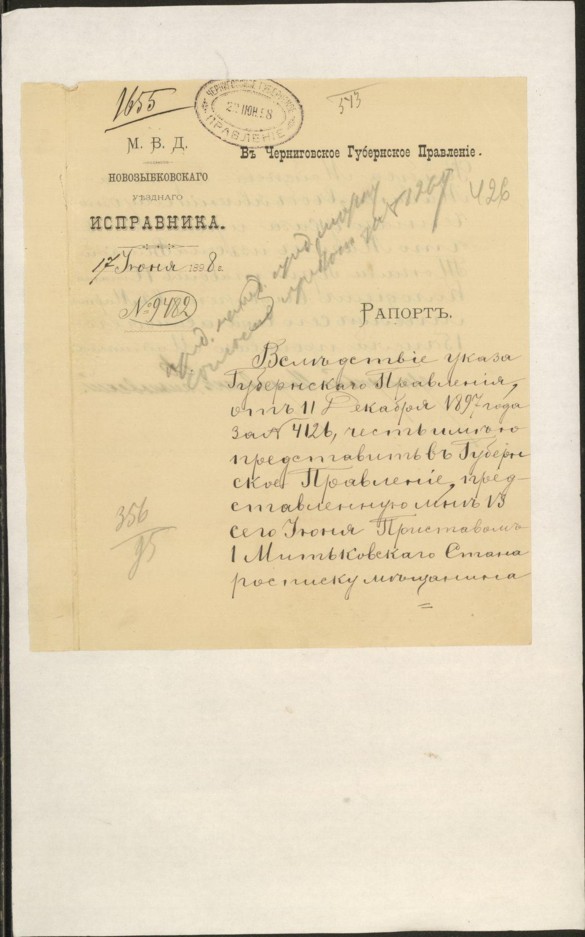 1655
ЧЕРНИГОВСКОЕ ГУБЕРНСКОЕ
ПРАВЛЕНІЕ
573
М. В. Д.
НОВОЗЫБКОВСКАГО
УѢЗДНАГО
ИСПРАВНИКА.
17 Іюня 1898 г.
№ 9482
Въ Черниговское Губернское Правленіе.
426
Рапортъ.
Вслѣдствіе указа
Губернскаго Правленія,
отъ 11 Декабря 1897 года
за № 4126, честь имѣю
представить въ Губерн
ское Правленіе, пред-
ставленную мнѣ 13
сего Іюня Приставомъ
1 Митьковскаго Стана
росписку мѣщанина
356
95